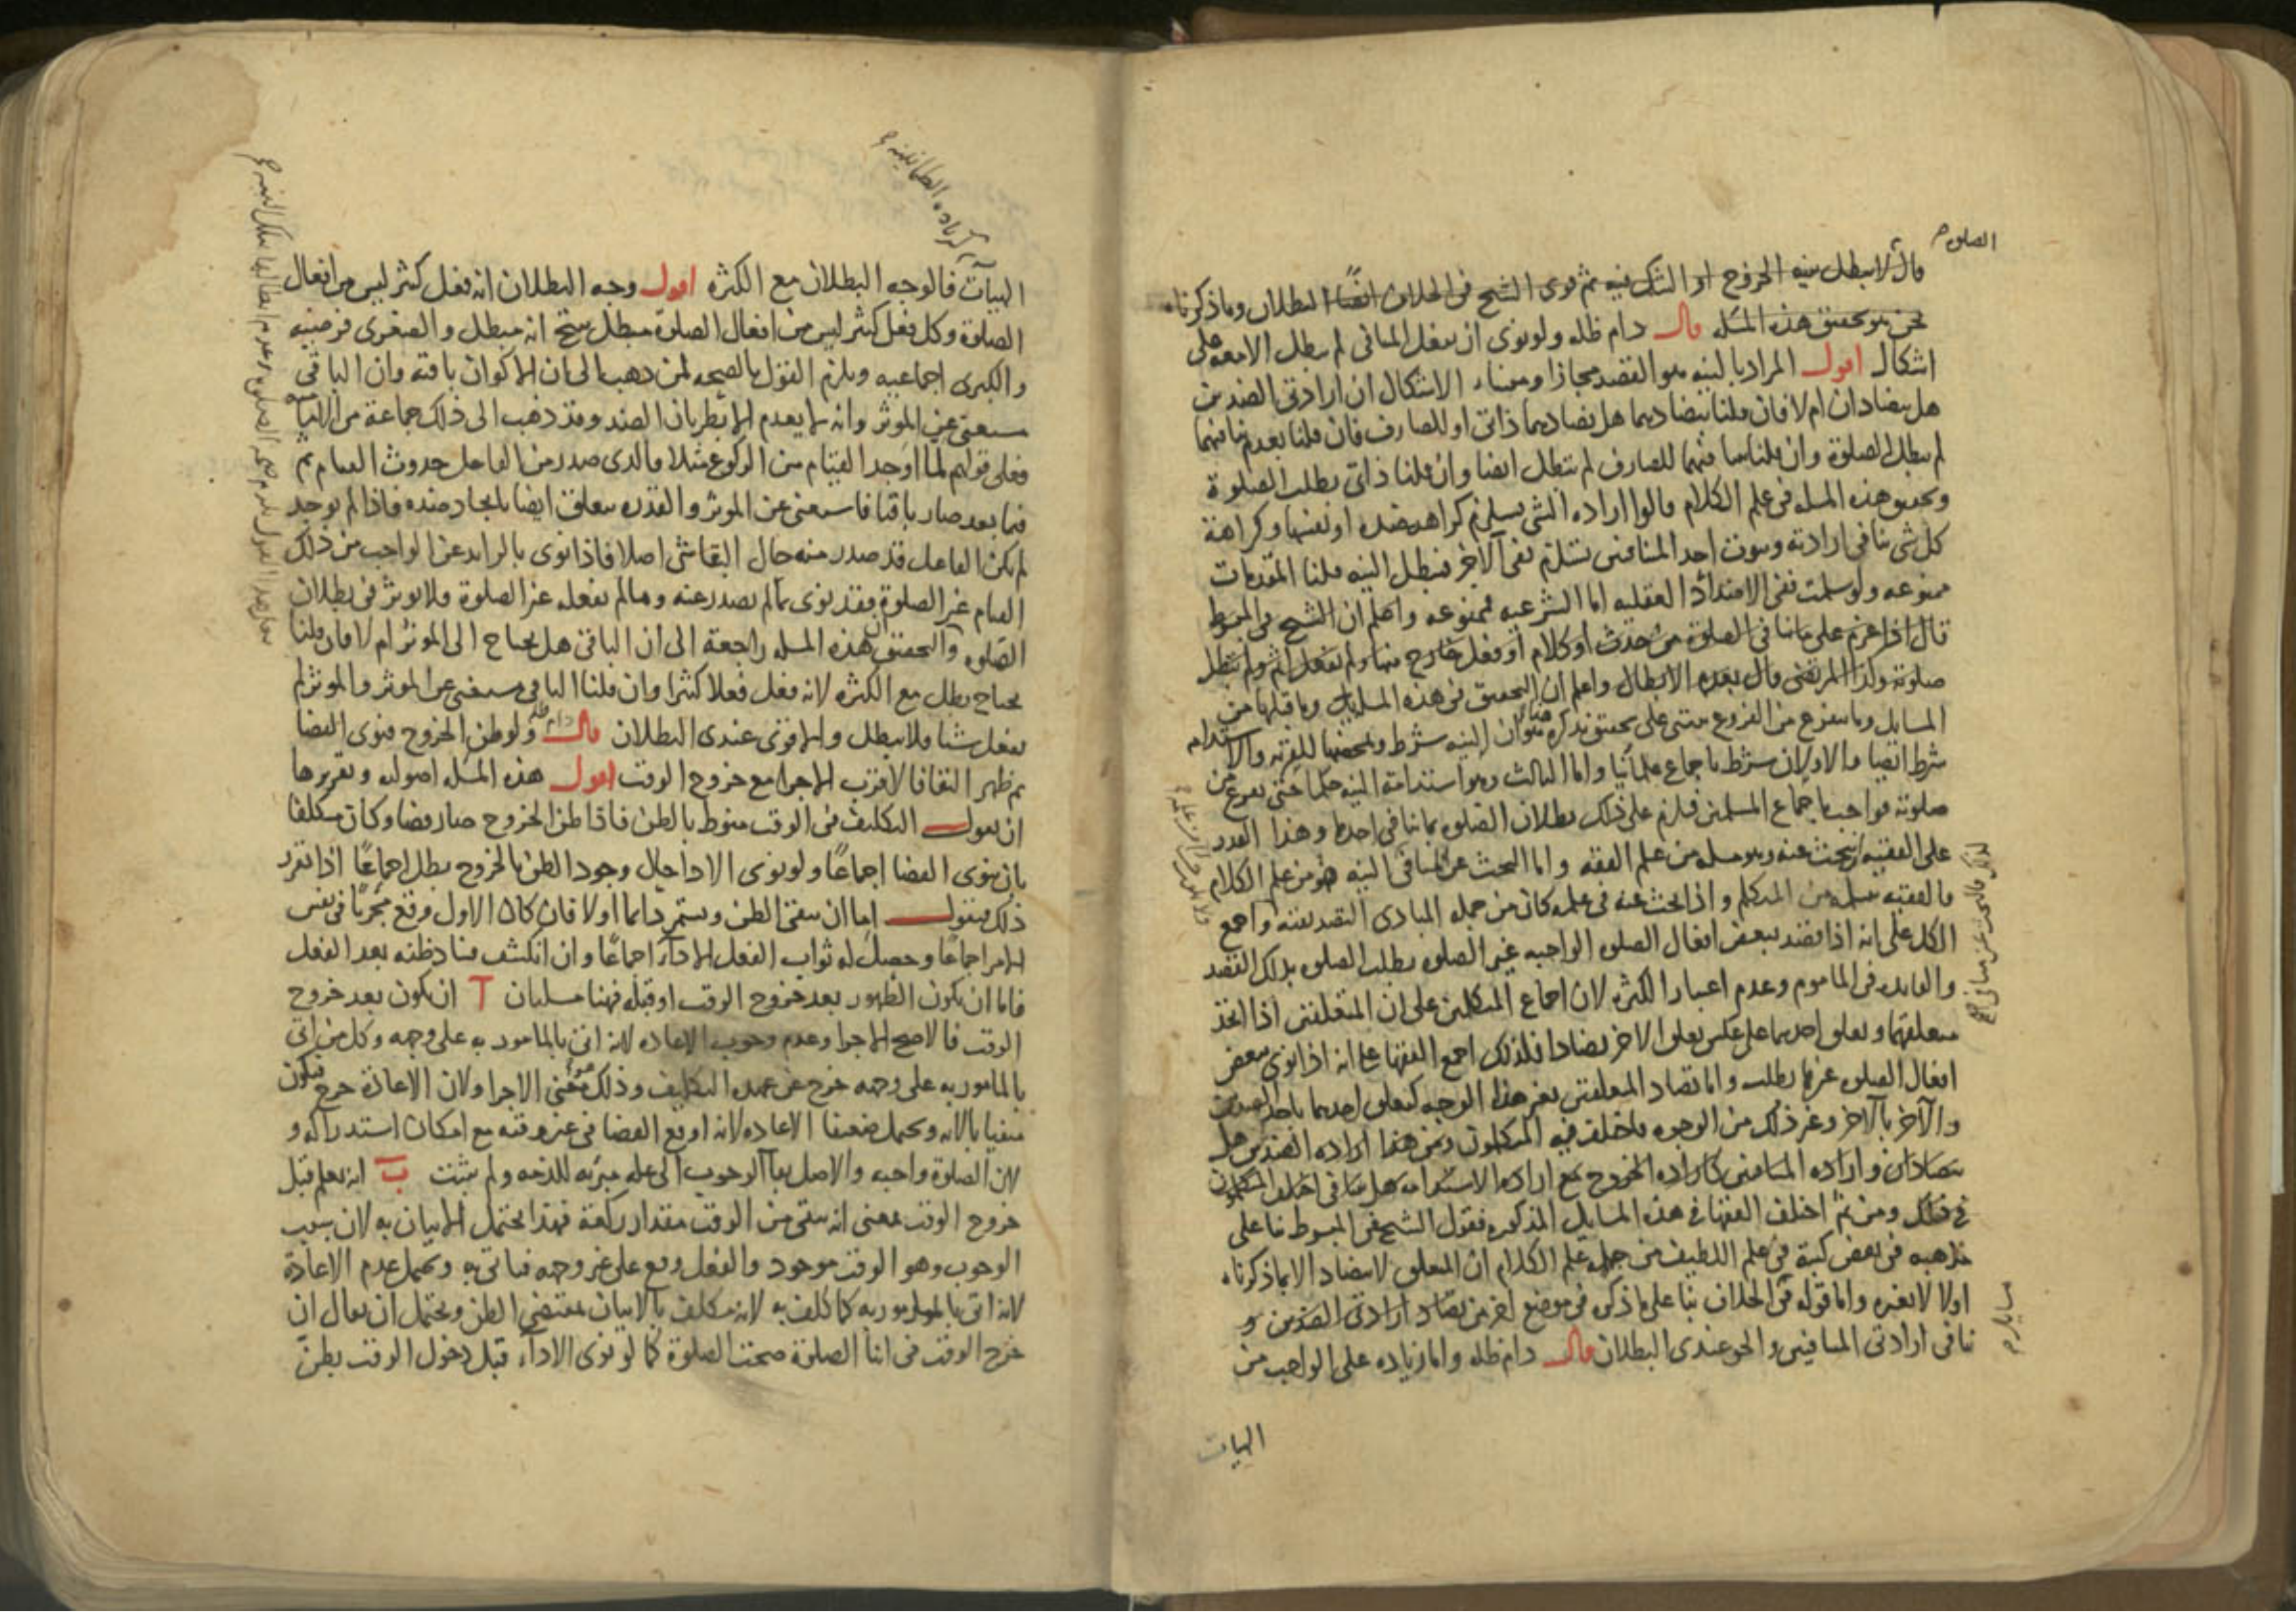 الصلوة
قال لا تبطل بنية الخروج او الشك فيه ثم قوى الشيخ فى الخلاف ايضًا البطلان وما ذكرناه
نحن هو تحقيق هذه المسله قال دام ظله ولو نوى ان يفعل المنافى لم يبطل الا معه على
اشكال اقول المراد بالنيه هو القصد مجازا ومنشاء الاشكال ان ارادتى الضدين
هل يتضادان ام لا فان قلنا بتضادهما هل تضادهما ذاتى او للصارف فان قلنا بعدم تنافيهما
لم يبطل الصلوة وان قلنا بتنافيهما للصارف لم تبطل ايضا وان قلنا ذاتى بطلت الصلوة
وتحقيق هذه المسله فى علم الكلام قالوا اراده الشى يستلزم كراهه ضده او نفسها وكراهة
كل شى ينافى ارادته وثبوت احد المتنافيين يستلزم نفى الآخر فتبطل النيه قلنا المقدمات
ممنوعه ولو سلمت ففى الامتداد العقليه اما الشرعيه فممنوعه واعلم ان الشيخ فى المبسوط
قال اذا عزم على ما ينافى الصلوة من حدث او كلام او فعل خارج عنها ولم يفعل اثم ولم تبطل
صلوته وكذا المرتضى قال بعدم الابطال واعلم ان التحقيق فى هذه المسايل وما قبلها من
المسايل وما يتفرع من الفروع يبتنى على تحقيق نذكره هنا وهو ان النيه شرط وتمحضها للقربه والاستدامه
شرط ايضا والاولان شرط باجماع علمائنا واما الثالث وهو استدامة النيه حكما حتى يفرغ من
صلوته فواجب باجماع المسلمين فلزم على ذلك بطلان الصلوه بما ينافى احدها وهذا القدر
على الفقيه ان يبحث عنه وهو مسله من علم الفقه واما البحث عن المنافى النيه فهو من علم الكلام
فالفقيه يتسلمه من المتكلم واذا بحث عنه فى علمه كان من جمله المبادى التصديقيه واجمع
الكل على انه اذا قصد ببعض افعال الصلوه الواجبه غير الصلوه بطلت الصلوه بذلك القصد
والفايده فى الماموم وعدم اعتبار الكثره لان اجماع المتكلمين على ان المتعلقين اذا اتحد
متعلقهما وتعلق احدهما على عكس تعلق الاخر تضادا فلذلك اجمع الفقها على انه اذا نوى ببعض
افعال الصلوه غيرها بطلت واما تضاد المتعلقين بغير هذا الوجه كتعلق احدهما باحد الضدين
والآخر بالآخر وغير ذلك من الوجوه فاختلف فيه المتكلمون ومن هذا اراده الضدين هل
يتضادان واراده المتنافيين كاراده الخروج مع اراده الاستدامه هل تتنافى اختلف المتكلمون
فى ذلك ومن ثم اختلف الفقها فى هذه المسايل المذكوره فقول الشيخ فى المبسوط بنا على
مذهبه فى بعض كتبه فى علم اللطيف من جمله علم الكلام ان المتعلق لا يتضاد الا بما ذكرناه
اولا لا بغيره واما قوله فى الخلاف بنا على ما ذكره فى موضع اخر من تضاد ارادتى الضدين و
تنافى ارادتى المتنافيين والحق عندى البطلان قال دام ظله واما زياده على الواجب من
الهيات
كزياده الطمانينه
الهيآت فالوجه البطلان مع الكثره اقول وجه البطلان انه فعل كثير ليس من افعال
الصلوة وكل فعل كثير ليس من افعال الصلوة مبطل ينتج انه مبطل والصغرى فرضيه
والكبرى اجماعيه ويلزم القول بالصحه لمن ذهب الى ان الاكوان باقيه وان الباقى
مستغنى عن الموثر وانه لا يعدم الا بطريان الضد وقد ذهب الى ذلك جماعة من الاماميه
فعلى قولهم لما اوجد القيام من الركوع مثلا فالذى صدر من الفاعل حدوث القيام ثم
فيما بعد صار باقيا فاستغنى عن الموثر والقدره يتعلق ايضا بايجاد ضده فاذا لم يوجد
لم يكن الفاعل قد صدر منه حال البقا شى اصلا فاذا نوى بالزايد عن الواجب من ذلك
القيام غير الصلوة فقد نوى بما لم يصدر عنه وما لم يفعله غير الصلوة فلا يوثر فى بطلان
الصلوه والتحقيق ان هذه المسله راجعة الى ان الباقى هل يحتاج الى الموثر ام لا فان قلنا
يحتاج بطل مع الكثره لانه فعل فعلا كثيرا وان قلنا الباقى مستغنى عن الموثر والموثر لم
يفعل شيئا فلا يبطل والاقوى عندى البطلان قال دام ظله ولو ظن الخروج فنوى القضا
ثم ظهر البقا فالاقرب الاجزا مع خروج الوقت اقول هذه المسله اصوليه وتقريرها
ان نقول التكليف فى الوقت منوط بالظن فاذا ظن الخروج صار قضا وكان مكلفا
بان ينوى القضا اجماعًا ولو نوى الادا حال وجود الظن بالخروج بطل اجماعًا اذا تقرر
ذلك فنقول اما ان يبقى الظن ويستمر دايما اولا فان كان الاول وقع مجزيا فى نفس
الامر اجماعًا وحصل له ثواب الفعل الادآء اجماعًا وان انكشف فساد ظنه بعد الفعل
فاما ان يكون الظهور بعد خروج الوقت او قبله فهنا مسلتان آ ان يكون بعد خروج
الوقت فالاصح الاجزا وعدم وجوب الاعاده لانه اتى بالمامور به على وجهه وكل من اتى
بالمامور به على وجهه خرج عن عهده التكليف وذلك معنى الاجزا ولان الاعادة حرج فيكون
منفيا بالايه ويحتمل ضعيفا الاعاده لانه اوقع القضا فى غير وقته مع امكان استدراكه و
لان الصلوة واجبه والاصل بقآ الوجوب الى علم مبرئه للذمه ولم يثبت بَ ان يعلم قبل
خروج الوقت بمعنى انه يبقى من الوقت مقدار ركعة فهذا يحتمل الاتيان به لان سبب
الوجوب وهو الوقت موجود والفعل وقع على غير وجهه فياتى به ويحتمل عدم الاعادة
لانه اتى بالمامور به كما كلف به لانه مكلف بالاتيان بمقتضى الظن ويحتمل ان يقال ان
خرج الوقت فى اثنا الصلوة صحت الصلوة كما لو نوى الادآء قبل دخول الوقت بظن